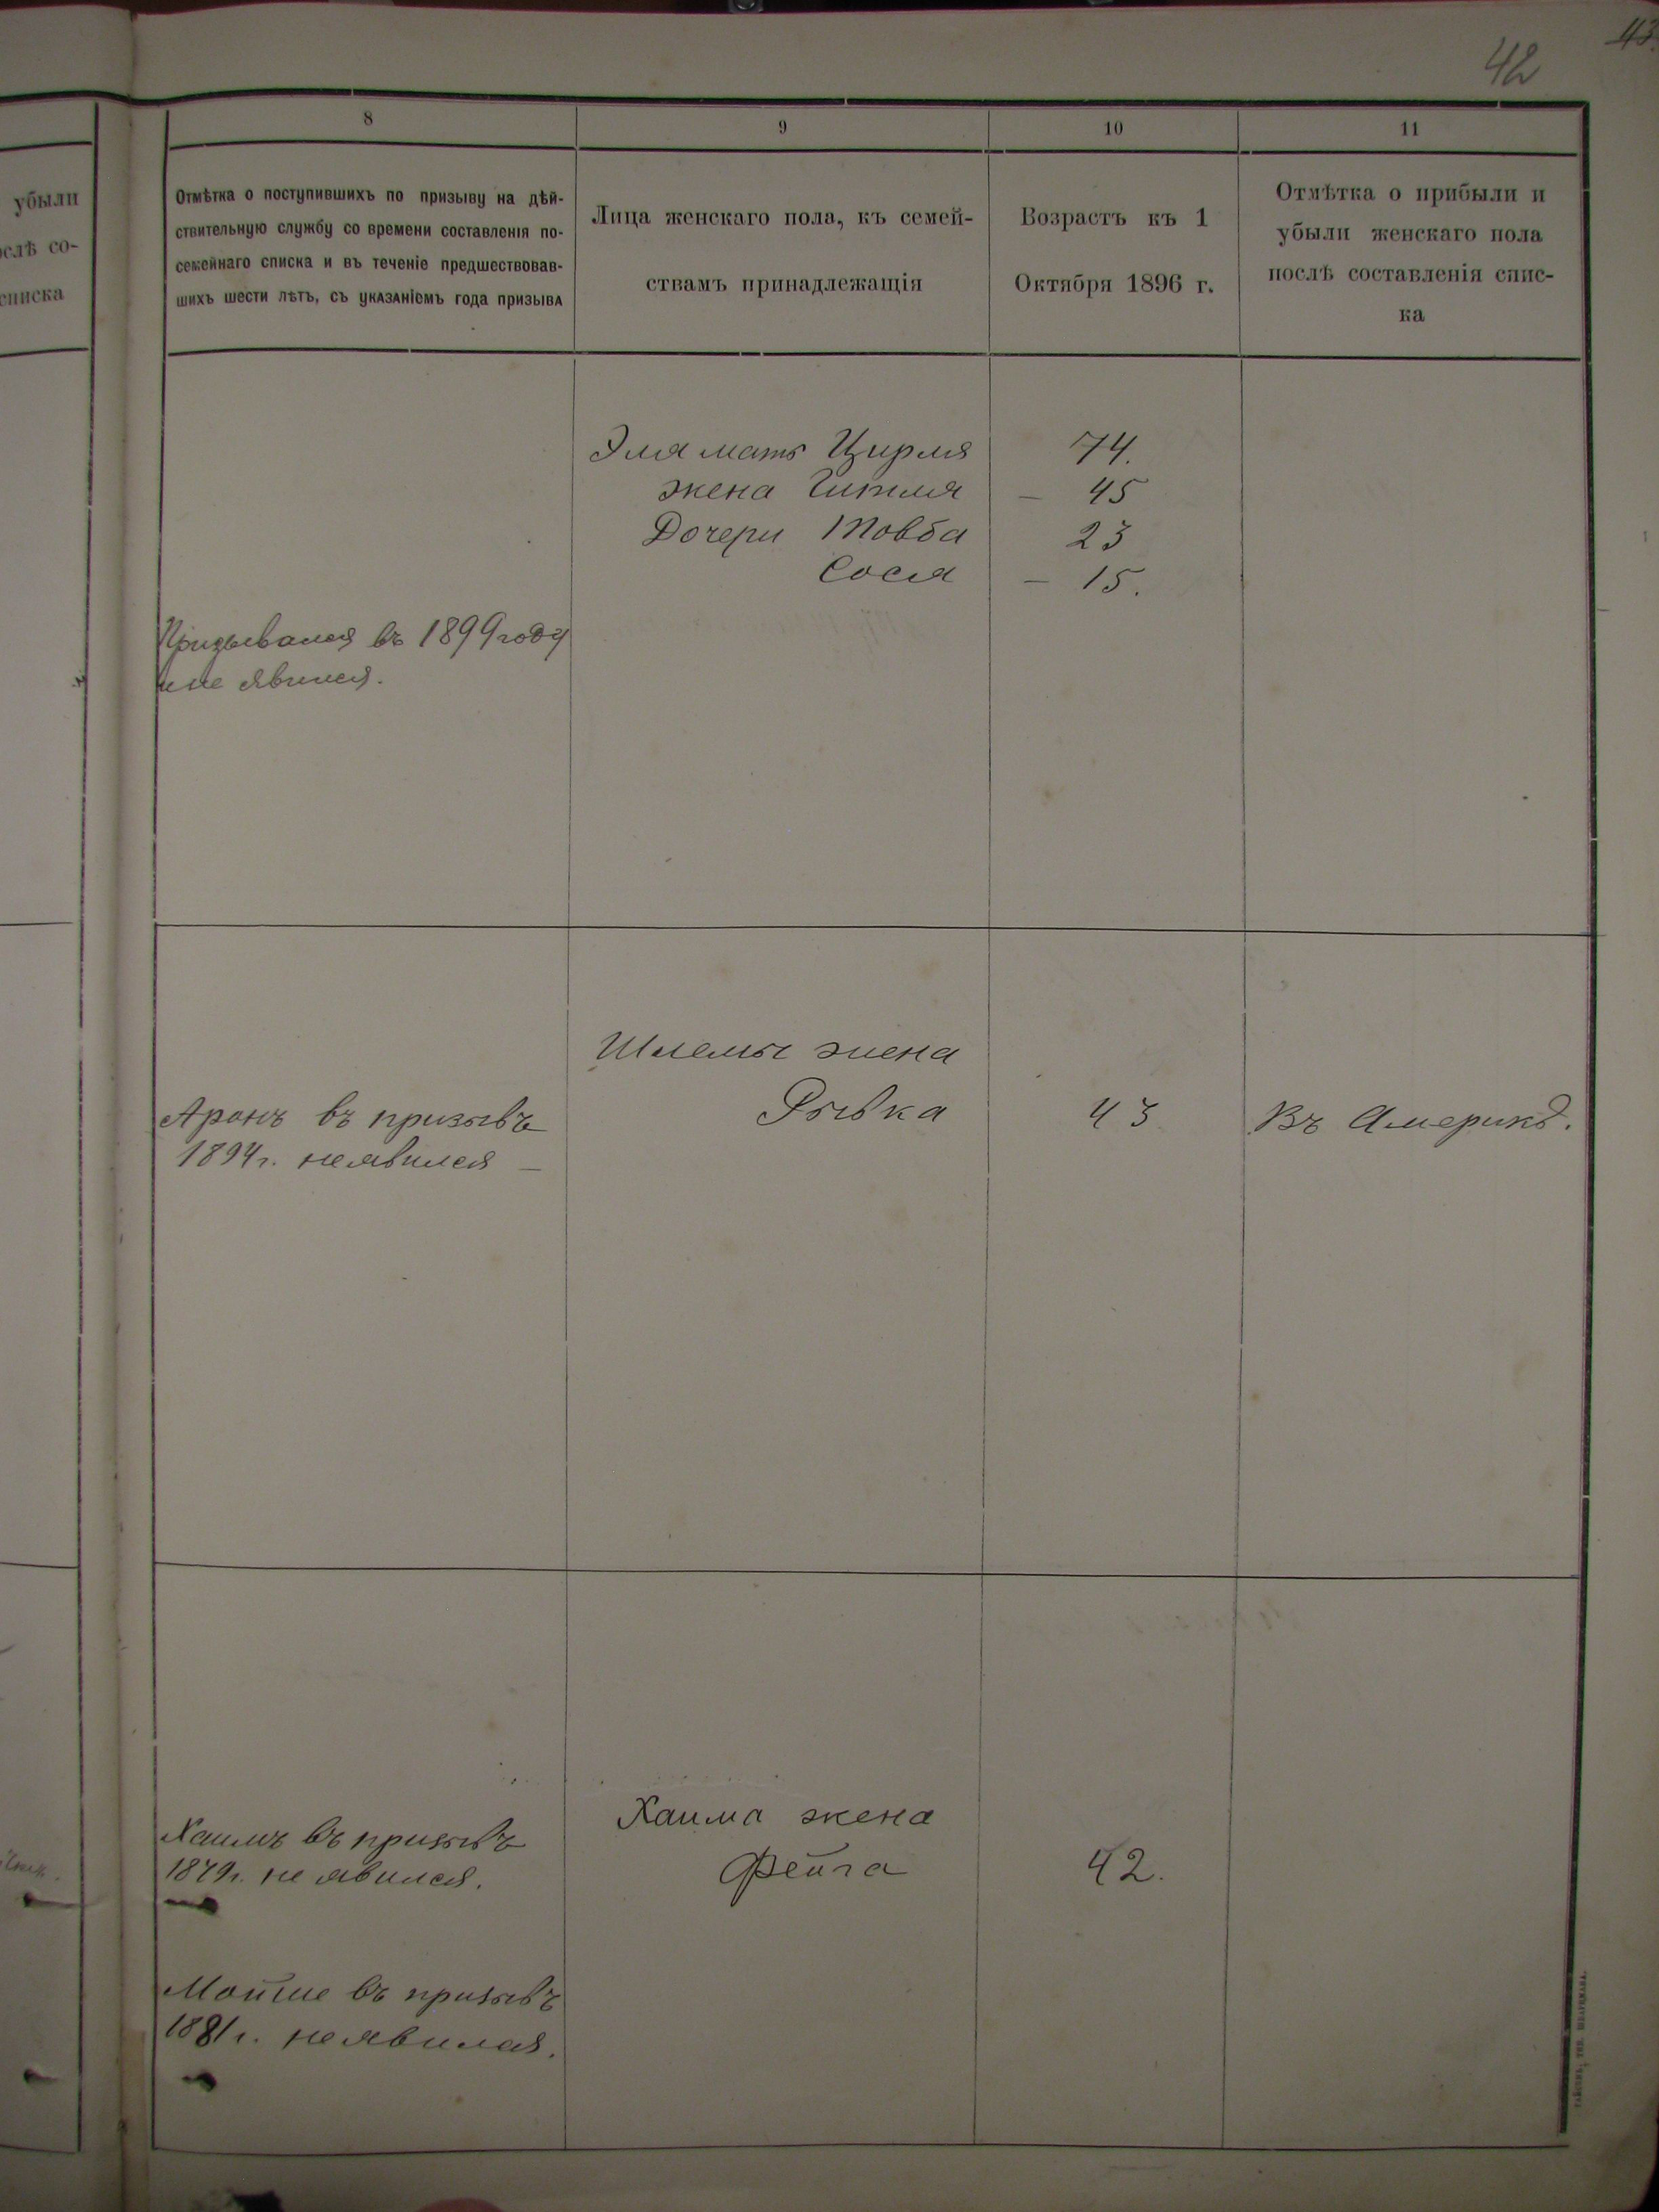 42
43
убыли
ослѣ со-
списка
8
9
10
11
Отмѣтка о поступившихъ по призыву на дѣй-
ствительную службу со времени составленія по-
семейнаго списка и въ теченіе предшествовав-
шихъ шести лѣтъ, съ указаніемъ года призыва
Лица женскаго пола, къ семей-
ствамъ принадлежащія
Возрастъ къ 1
Октября 1896 г.
Отмѣтка о прибыли и
убыли женскаго пола
послѣ составленія спис-
ка
Эля мать Цирля 74.
жена Гитля – 45
Дочери Товба 23
Сося – 15.
Призывался въ 1899 году
и не явился.
Шлемы жена
Рывка 43 Въ Америкѣ.
Аронъ въ призывъ
1894 г. не явился –
Хаима жена
Фейга 42.
Хаимъ въ призывъ
1879 г. не явился.
Мойше въ призывъ
1881 г. не явился.